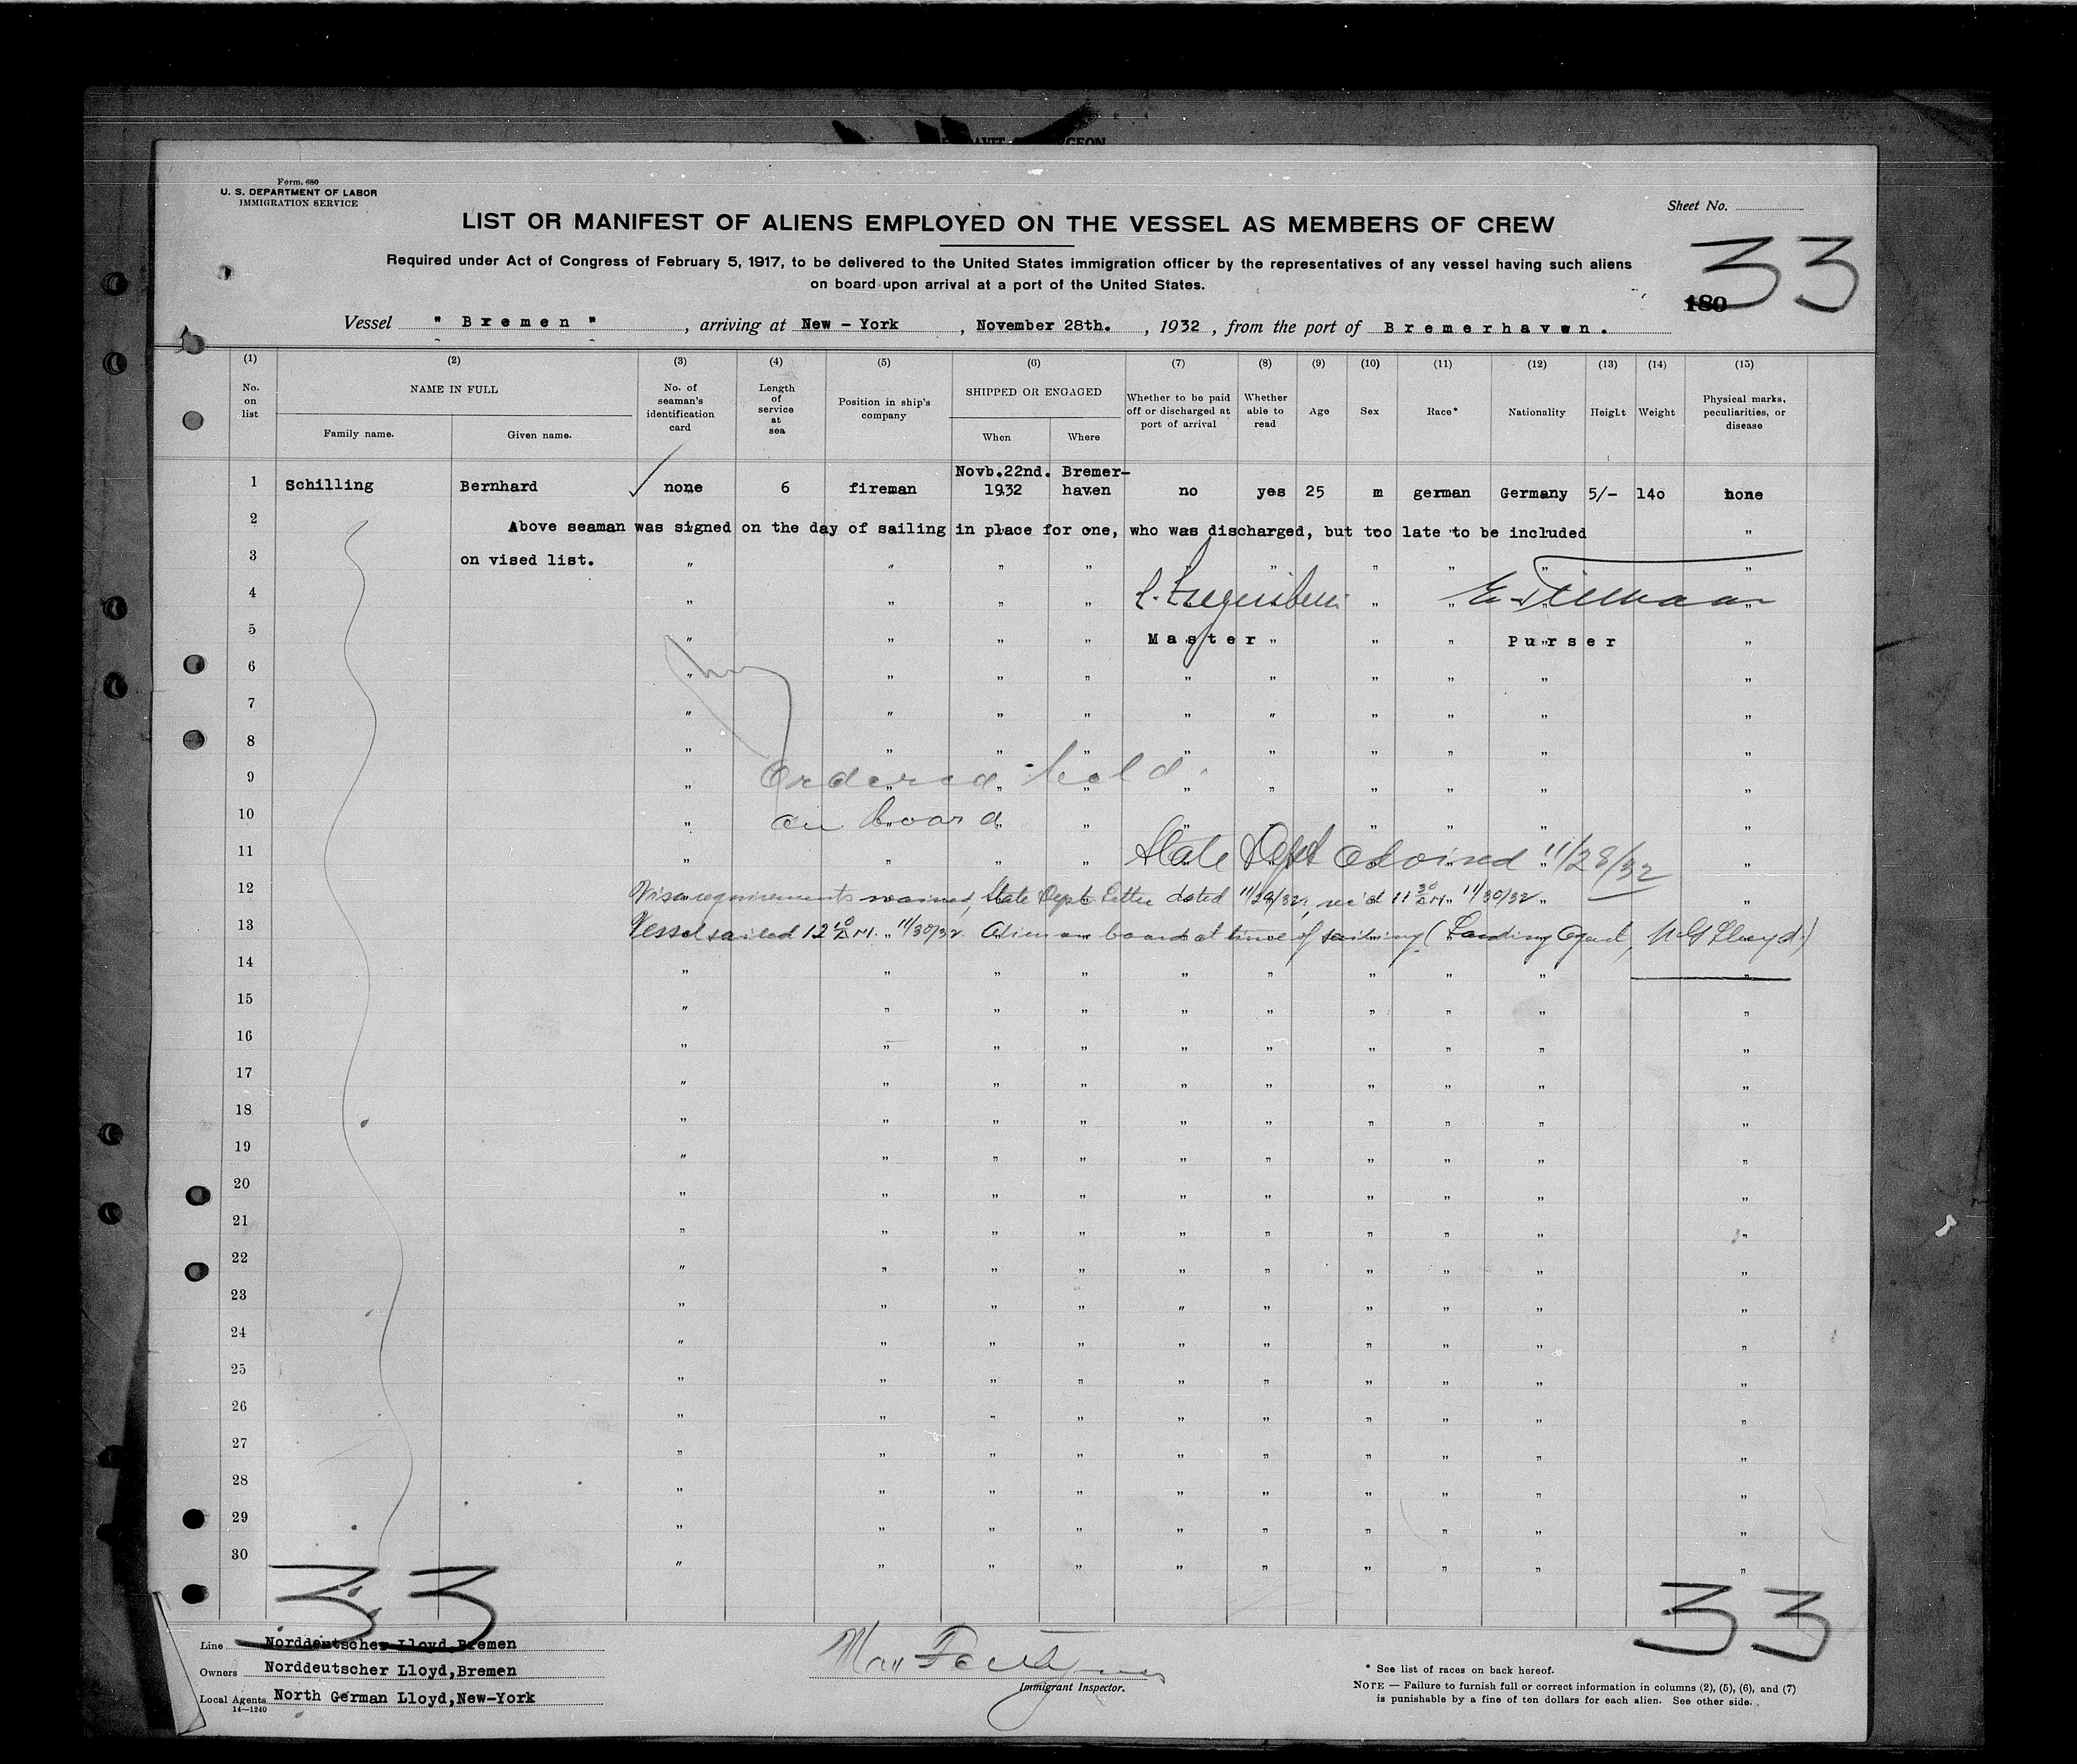 Form. 680
U. S. DEPARTMENT OF LABOR
IMMIGRATION SERVICE
Sheet No.
LIST OR MANIFEST OF ALIENS EMPLOYED ON THE VESSEL AS MEMBERS OF CREW
33
Required under Act of Congress of February 5, 1917, to be delivered to the United States immigration officer by the representatives of any vessel having such aliens
on board upon arrival at a port of the United States.
180
Vessel " Bremen " , arriving at New - York , November 28th. , 1932 , from the port of Bremerhaven.
(1) (2) (3) (4) (5) (6) (7) (8) (9) (10) (11) (12) (13) (14) (15)
No. on list NAME IN FULL Family name. Given name. No. of seaman's identification card Length of service at sea Position in ship's company SHIPPED OR ENGAGED When Where Whether to be paid off or discharged at port of arrival Whether able to read Age Sex Race* Nationality Height Weight Physical marks, peculiarities, or disease
1 Schilling Bernhard none 6 fireman Novb.22nd. 1932 Bremer-haven no yes 25 m german Germany 5/- 14o none
2 Above seaman was signed on the day of sailing in place for one, who was discharged, but too late to be included "
3 on vised list. " " " " " " " " " "
4 " " " " " " "
5 " " " " Master " " " Purser "
6 " " " " " " " " " "
7 " " " " " " " " " "
8 " " " " " " " " " "
9 " Ordered held " " " " " "
10 " on board " " " " " " "
11 " " " " State Dept advised 11/28/32 "
12 Visa requirements waived, State Dept Letter dated 11/29/32, rec'd 11 30 A.M. 11/30/32 "
13 Vessel sailed 12 10 A.M. 11/30/32. Alien on board at time of sailing (Landing Agent, N.G. Lloyd.)
14 " " " " " " " " " "
15 " " " " " " " " " "
16 " " " " " " " " " "
17 " " " " " " " " " "
18 " " " " " " " " " "
19 " " " " " " " " " "
20 " " " " " " " " " "
21 " " " " " " " " " "
22 " " " " " " " " " "
23 " " " " " " " " " "
24 " " " " " " " " " "
25 " " " " " " " " " "
26 " " " " " " " " " "
27 " " " " " " " " " "
28 " " " " " " " " " "
29 " " " " " " " " " "
30 " " " " " " " " " "
33 33
Line Norddeutscher Lloyd,Bremen
Owners Norddeutscher Lloyd,Bremen
Local Agents North German Lloyd,New-York
14—1240
Immigrant Inspector.
* See list of races on back hereof.
NOTE — Failure to furnish full or correct information in columns (2), (5), (6), and (7)
is punishable by a fine of ten dollars for each alien. See other side.